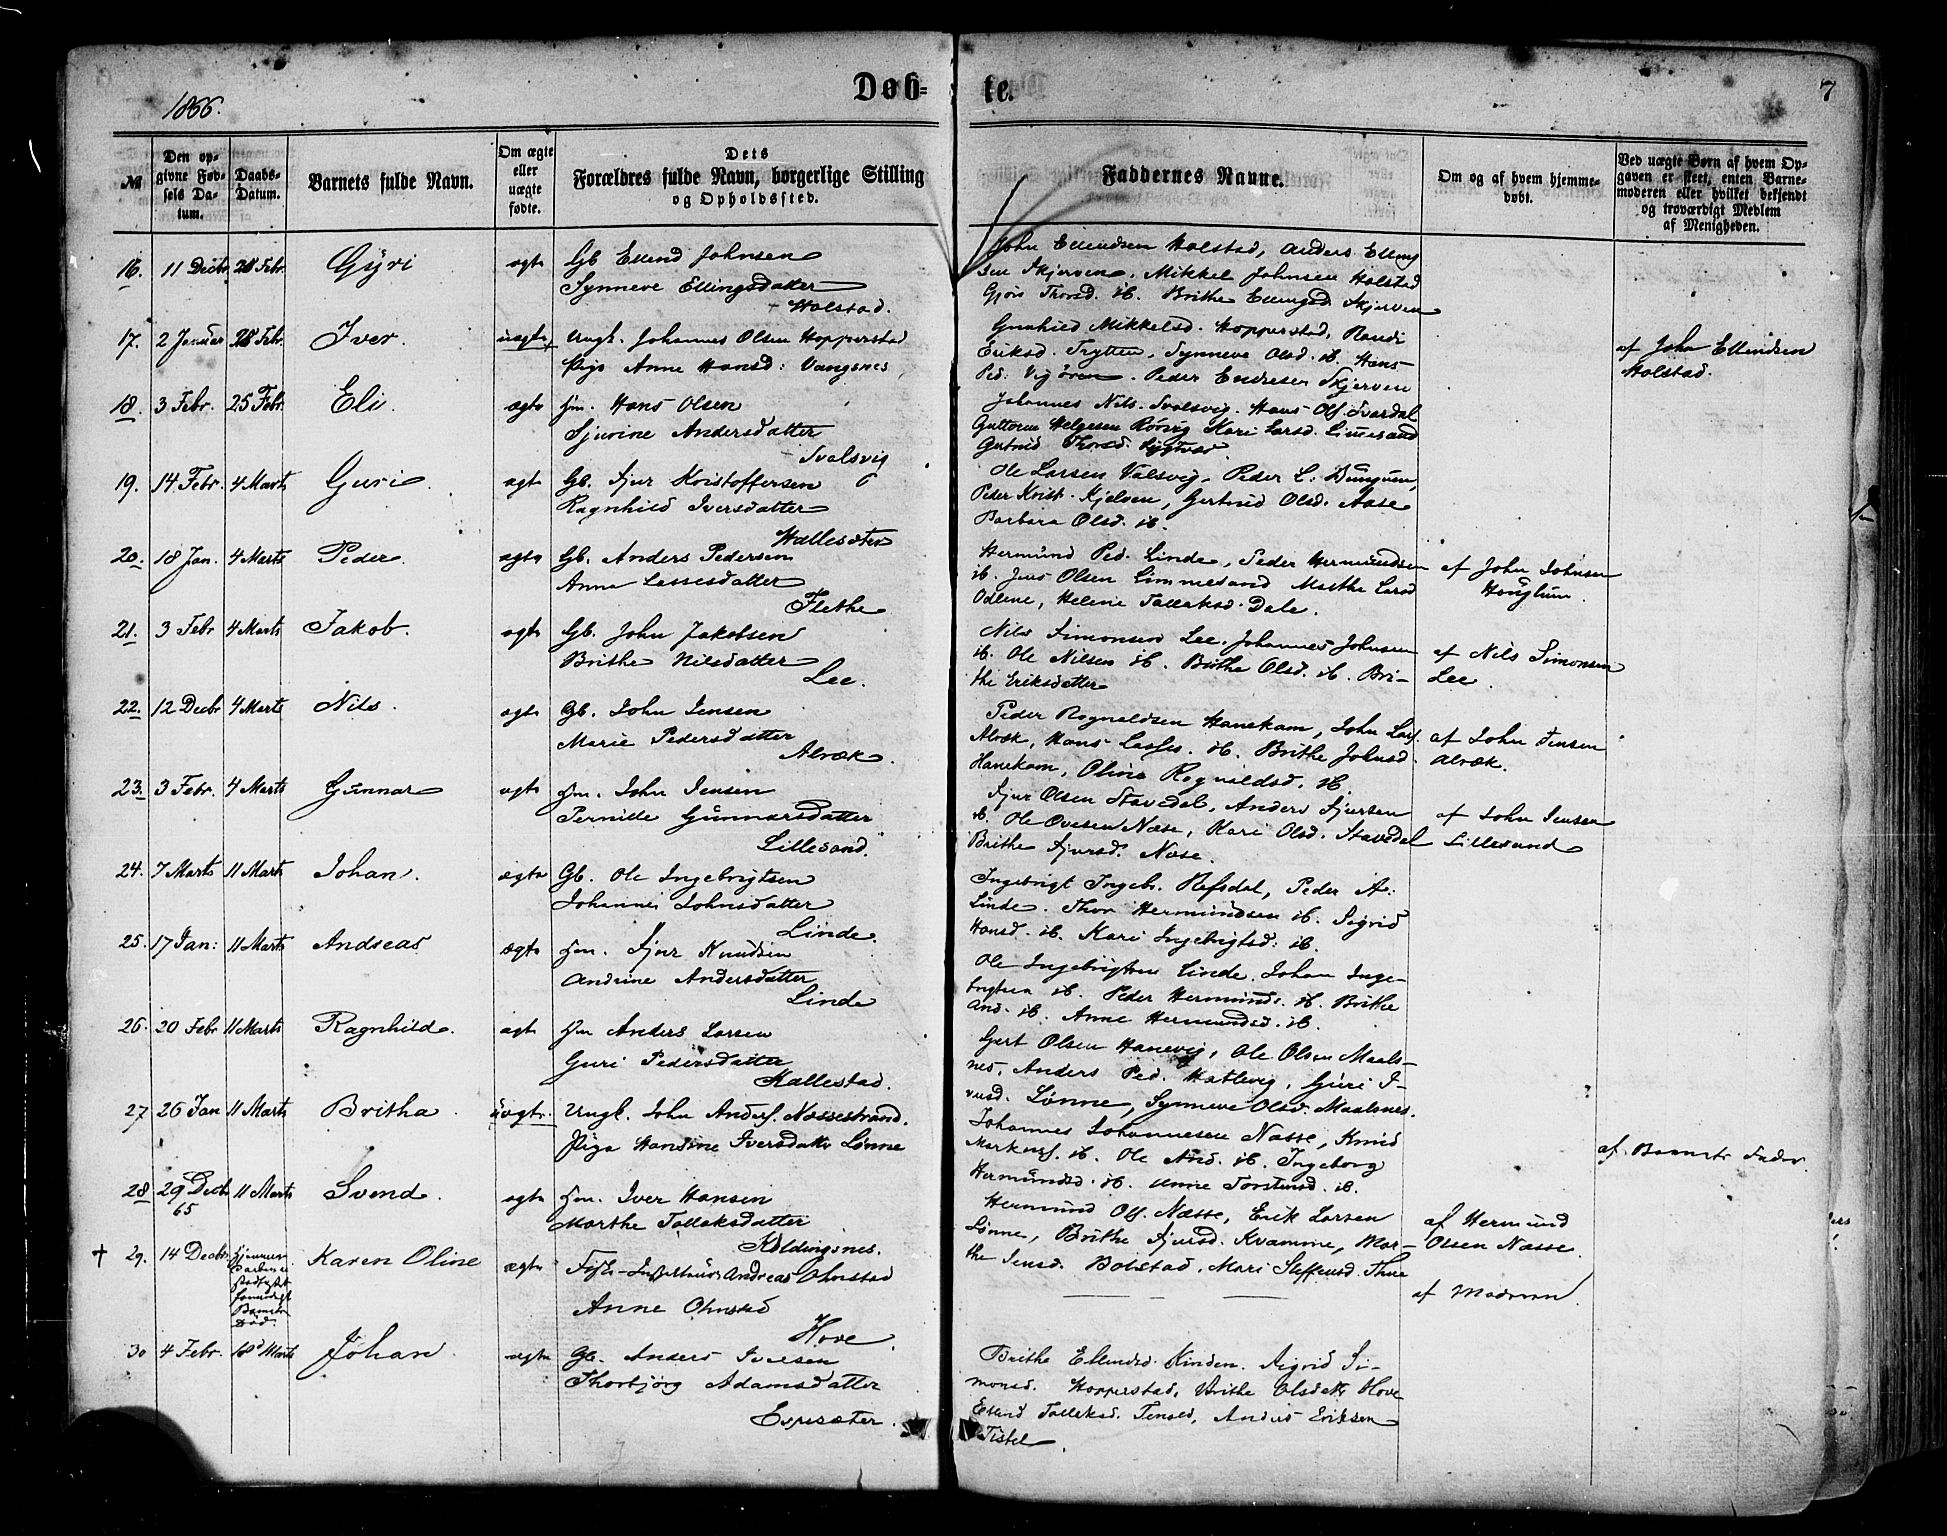 1866.
Døb-
te.
7
№
Den op-
givne Fød-
sels Da-
tum.
Daabs-
Datum.
Barnets fulde Navn.
Om ægte
eller
uægte
fødte.
Dets
Forældres fulde Navn, borgerlige Stilling
og Opholdssted.
Faddernes Navne.
Om og af hvem hjemme-
døbt.
Ved uægte Børn af hvem Op-
gaven er skeet, enten Barne-
moderen eller hvilket bekjendt
og troværdigt Medlem
af Menigheden.
16. 11 Decbr. 28 Febr. Gyri ægte Gb Ellend Johnsen
Synneve Ellingsdatter
Holstad.
John Ellendsen Holstad, Anders Elling
sen Skjerven. Mikkel Johnsen Holstad
Gjøri Thorsd. ib. Brithe Ellingsd Skjerven
17. 2 Januar 28 Febr. Iver. uægte Ungk. Johannes Olsen Hopperstad
Pige Anne Hansd: Vangsnes
Gunhild Mikkelsd. Hopperstad, Randi
Eriksd. Trytten, Synneve Olsd. ib. Hans
Ped: Vigøren. Peder Endresen Skjerven
af John Ellendsen
Holstad.
18. 3 Febr. 25 Febr. Eli. ægte Hm. Hans Olsen
Sjurine Andersdatter
Svalsvig
Johannes Nils. Svalsvig. Hans Ols. Svardal
Guttorm Helgesen Rørvig Kari Larsd. Limesand
Gertrud Thorsd.
19. 14 Febr. 4 Marts Guri. ægte Gb. Sjur Kristoffersen
Ragnhild Iversdatter
Hallesæter
Ole Larsen Valsvig, Peder L.
Peder Krist. Kjelven, Gertrud Olsd. Aase
Barbara Olsd. ib.
20. 18 Jan. 4 Marts Peder. ægte Gb. Anders Pedersen
Anna Lassesdatter
Flethe
Hermund Ped. Linde, Peder Hermundsen
ib. Jens Olsen Limmesand Marthe Larsd
Odlene, Helene Tolleksd. Dale.
af John Johnsen
Houglum.
21. 3 Febr 4 Marts Jakob. ægte Gb. John Jakobsen
Brithe Nilsdatter
Lee.
Nils Simonsen Lee. Johannes Johnsen
ib. Ole Nilsen ib. Brithe Olsd. ib. Bri-
the Eriksdatter
af Nils Simonsen
Lee.
22. 12 Decbr 4 Marts Nils. ægte Gb. John Jensen
Marie Pedersdatter
Alræk.
Peder Rognaldsen Hanekam, John Lass.
Alræk, Hans Lasses. ib. Brithe Johnsd.
Hanekam, Oline Rognaldsd. ib.
af John Jensen
Alræk.
23. 3 Febr. 4 Marts Gunnar ægte Hm. John Jensen
Pernille Gunnarsdatter
Lillesand.
Sjur Olsen Stavedal, Anders Sjursen
ib. Ole Ovesen Næse, Kari Olsd. Stavedal
Brithe Sjursd. Næse.
af John Jensen
Lillesand
24. 7 Marts 11 Marts Johan. ægte Gb. Ole Ingebrigtsen
Johanne Johnsdatter
Linde.
Ingebrigt Ingebr. Refsdal, Peder A.
Linde. Thor Hermundsen ib. Sigrid
Hansd. ib. Kari Ingebrigtsd. ib.
25. 17 Jan: 11 Marts Andreas ægte Hm. Sjur Knudsen
Andrine Andersdatter
Linde
Ole Ingebrigtsen Linde, Johan Inge-
brigtsen ib. Peder Hermunds. ib. Brithe
And. ib. Anne Hermundsd. ib.
26. 20 Febr 11 Marts Ragnhild. ægte Hm Anders Larsen
Guri Pedersdatter
Kallestad.
Gert Olsen Hanevig, Ole Olsen Maals-
nes, Anders Ped. Hatlevig, Guri I-
versd. Lønne, Synneve Olsd. Maalsnes.
27 26 Jan 11 Marts Britha. uægte. Ungk. John Anders. Næssestrand.
Pige Hansine Iversdatter Lønne
Johannes Johannesen Næsse, Knud
Markuss. ib. Ole And. ib. Ingeborg
Hermundsd. ib. Anne Torstensd. ib.
af Barnets Fader.
28 29 Decbr 65 11 Marts Svend. ægte Hm. Iver Hansen
Marthe Tolleksdatter
Koldingsnes.
Hermund Ols. Næsse, Erik Larsen
Lønne, Brithe Sjursd. Kvamme, Mar-
the Jensd. Bolstad, Mari Steffensd. Thue
af Hermund
Olsen Næsse.
† 29. 14 Decbr. Karen Oline ægte Andreas Ohnstad
Anne Ohnstad
Hove
af Moderen
30 4 Febr. 18d Marts Johan. ægte Gb. Anders Iversen
Thorbjørg Adamsdatter
Espesæter.
Brithe Ellendsd. Kinden. Sigrid Si-
monsd. Hopperstad, Brithe Olsdatr Hove
Erland Tolleksd. Tenold, Anders Eriksen
Tistel.